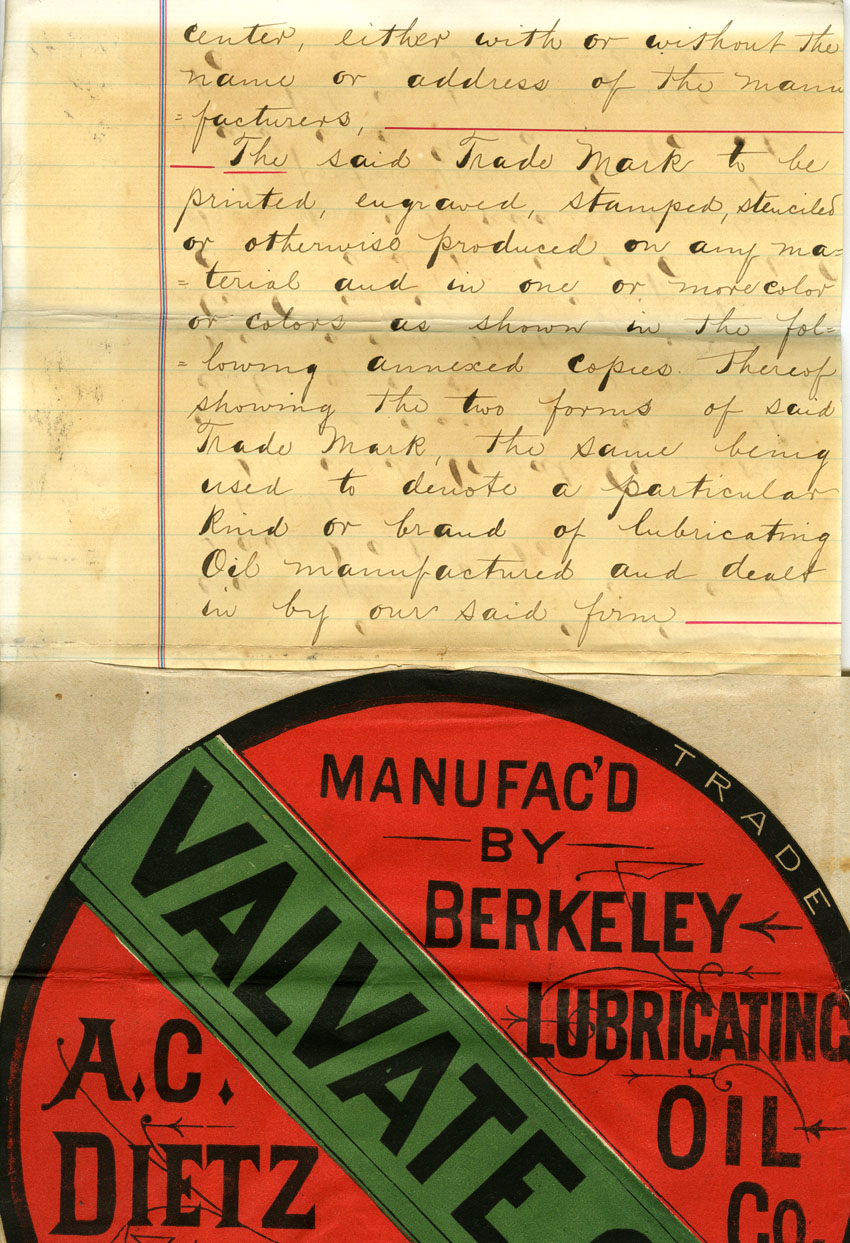 center, either with or without the
name or address of the manu
=facturers,
The said Trade Mark to be
printed, engraved, stamped, stenciled
or otherwise produced on any ma=
=terial and in one or more color
or colors as shown in the fol=
=lowing annexed copies thereof
showing the two forms of said
Trade Mark, the same being
used to denote a particular
kind or brand of lubricating
Oil manufactured and dealt
in by our said firm
TRADE
MANUFAC'D
BY
BERKELEY
LUBRICATING
OIL
Co.
VALVATE
A.C.
DIETZ